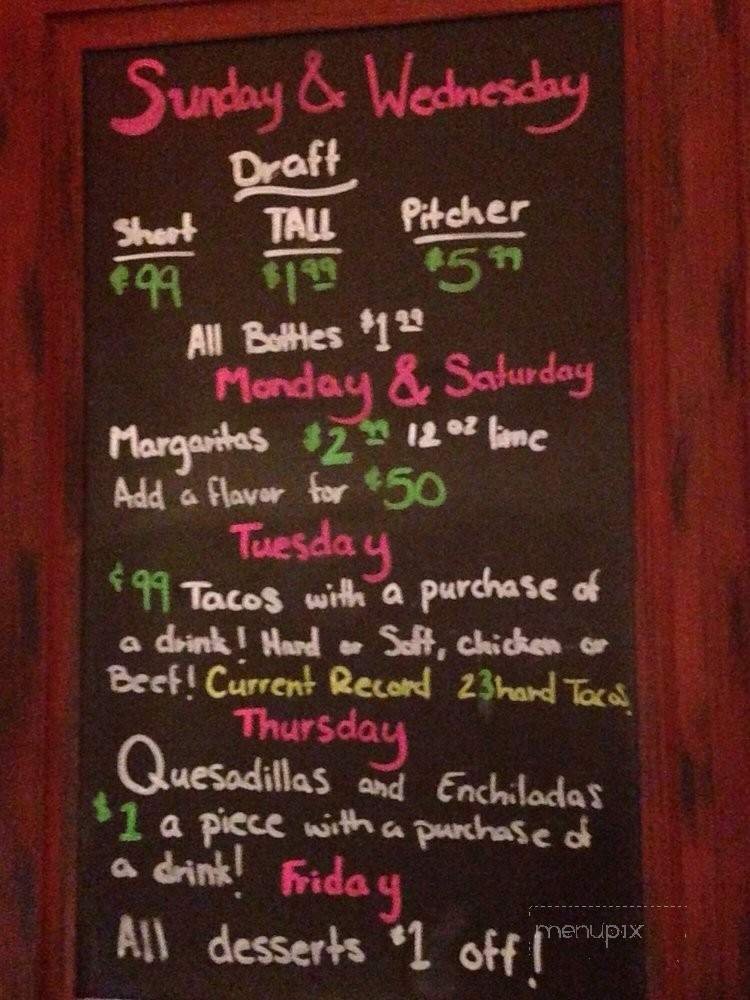 Sunday & Wednesday
Draft
Short TALL Pitcher
¢99 $1 99 $5 99
All Bottles $1 99
Monday & Saturday
Margaritas $2 99 12 oz lime
Add a flavor for ¢50
Tuesday
¢99 Tacos with a purchase of
a drink! Hard or Soft, chicken or
Beef! Current Record 23 hard Tacos
Thursday
Quesadillas and Enchiladas
$1 a piece with a purchase of
a drink! Friday
All desserts $1 off!
menupix